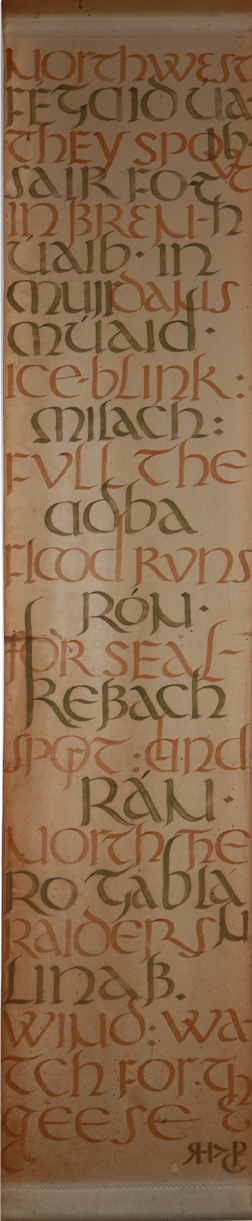 NORTHWEST
FÉGAID ÚA-
THEY SPOT IB·
SAIR FO T
IN BREN-H
ÚAID· IN
MUIR DANS
MÚAID·
ICE-BLINK:
MILACH:
FVLL THE
ADBA
FLOOD RVNS
RÓN·
FOR SEAL-
REBACH
SPOT: AND
RÁN·
NORTH THE
RO GABLA
RAIDERS N
LINAD.
WIND: WA-
TCH FOR TH
GEESE E